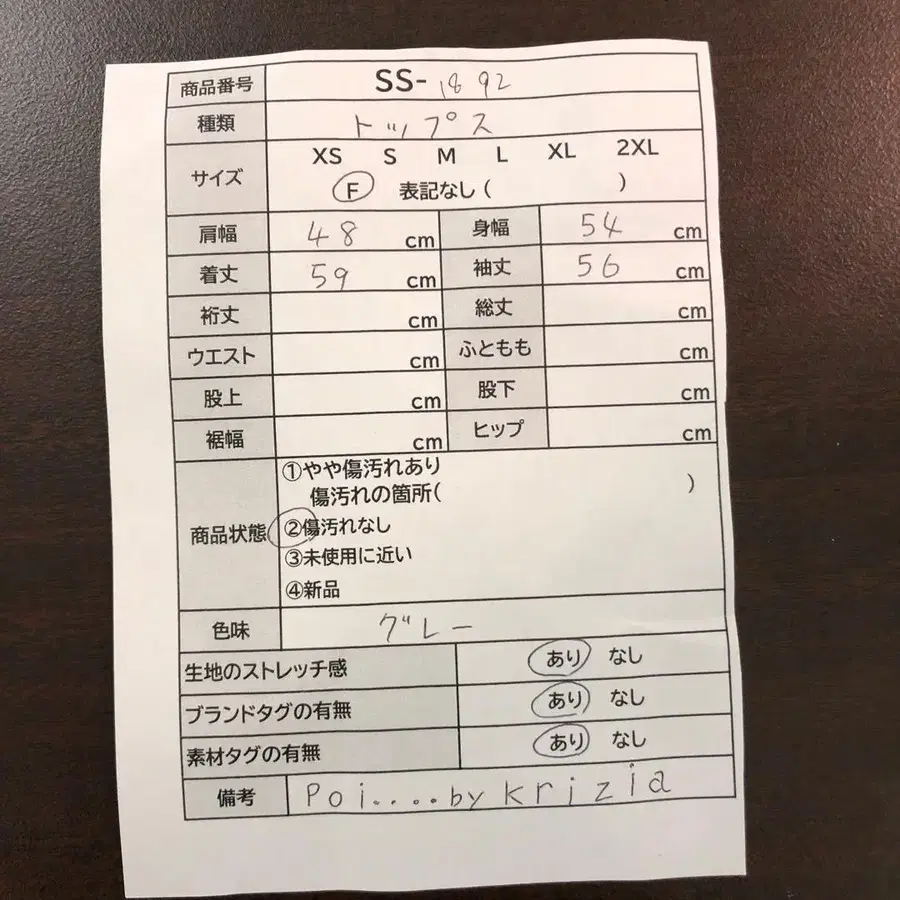 商品番号 SS-1892
種類 トップス
サイズ XS S M L XL 2XL
F 表記なし( )
肩幅 48 cm 身幅 54 cm
着丈 59 cm 袖丈 56 cm
裄丈 cm 総丈 cm
ウエスト cm ふともも cm
股上 cm 股下 cm
裾幅 cm ヒップ cm
商品状態 ①やや傷汚れあり
傷汚れの箇所( )
②傷汚れなし
③未使用に近い
④新品
色味 グレー
生地のストレッチ感 あり なし
ブランドタグの有無 あり なし
素材タグの有無 あり なし
備考 Poi.....by krizia